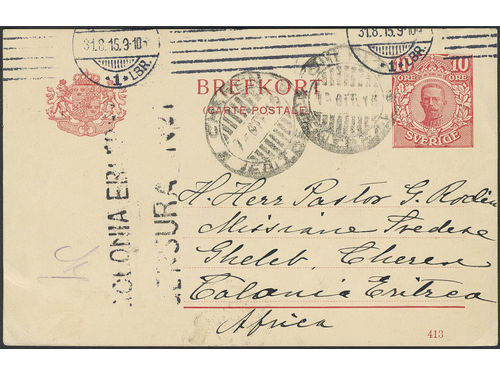 31.8.15.9-10
1 LBR.
31.8.15.9-10
1 LBR.
10
ÖRE ÖRE
SVERIGE
BREFKORT
(CARTE POSTALE)
COLONIA
CENSURA
H. Herr Pastor G. Rodén
Missione Svedese
Gheleb, Cheren
Colonia Eritrea
Africa
413